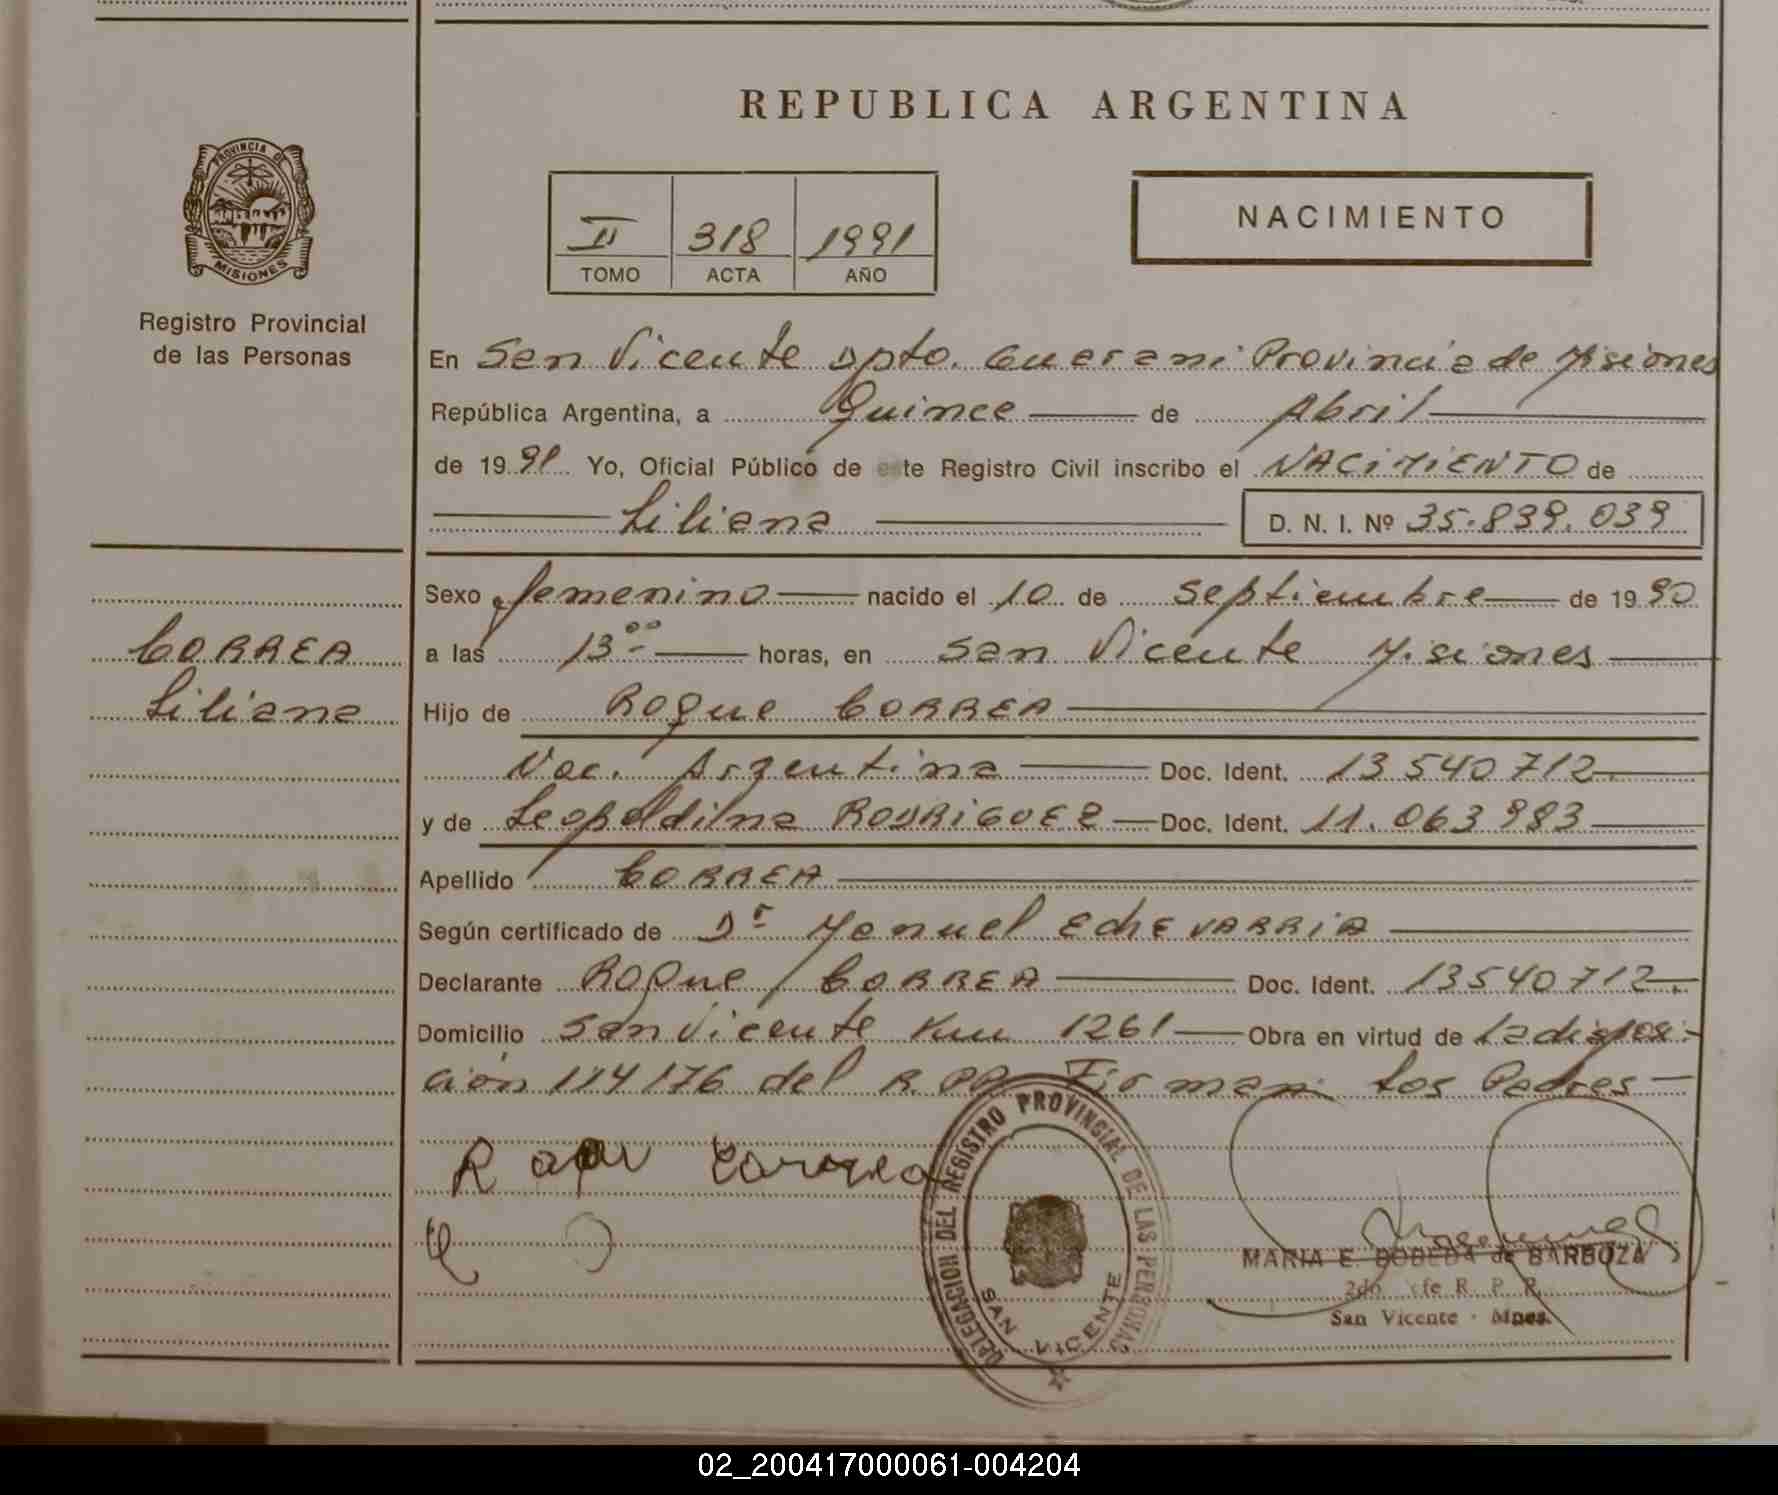 REPUBLICA ARGENTINA
PROVINCIA DE
MISIONES
Registro Provincial
de las Personas
II 318 1991
TOMO ACTA AÑO
NACIMIENTO
En San Vicente Dpto. Guarani Provincia de Misiones
República Argentina, a Quince de Abril
de 1991 Yo, Oficial Público de este Registro Civil inscribo el NACIMIENTO de
Liliana D. N. I. Nº 35.839.039
CORREA
Liliana
Sexo femenino nacido el 10 de Septiembre de 1990
a las 13 00 horas, en San Vicente Misiones
Hijo de Roque CORREA
Nac. Argentina Doc. Ident. 13540712
y de Leopoldina RODRIGUEZ Doc. Ident. 11.063983
Apellido CORREA
Según certificado de Dr Manuel EchEVARRIA
Declarante Roque CORREA Doc. Ident. 13540712
Domicilio San Vicente Km 1261 Obra en virtud de La disposi-
ción 114176 del R.PP. Firman Los Padres
Correa
DELEGACION DEL REGISTRO PROVINCIAL DE LAS PERSONAS
SAN VICENTE
MARIA E. BOBEDA de BARBOZA
2do Jefe R. P. P.
San Vicente - Mnes.
02_200417000061-004204